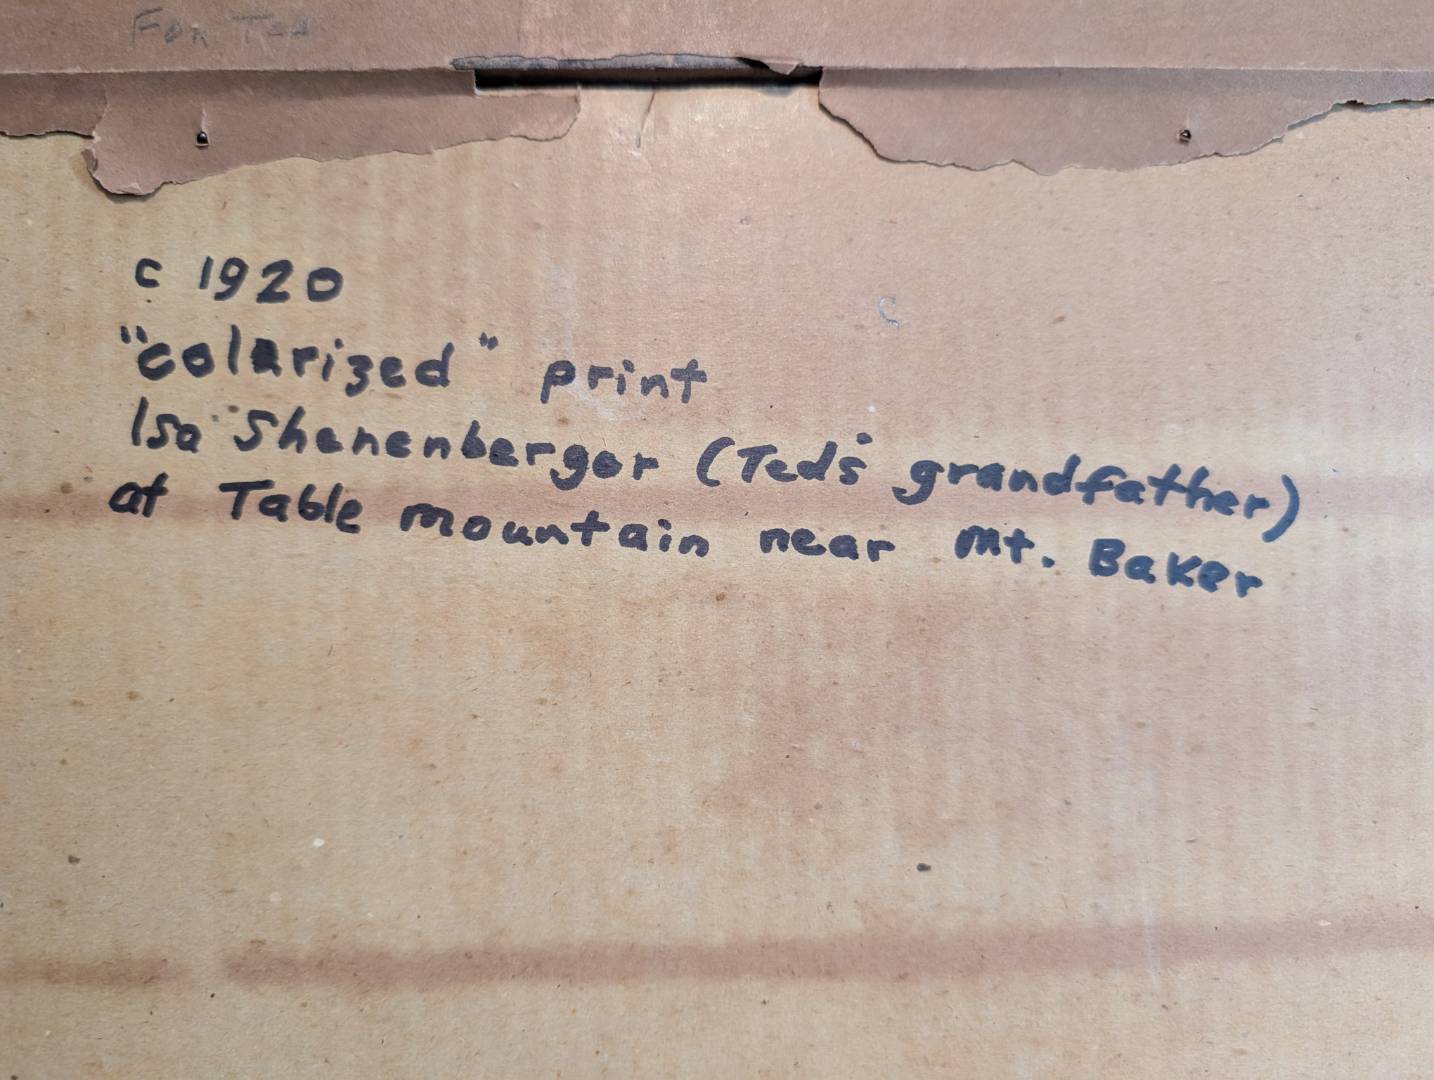 For Ted
c 1920
"colarized" print
Isa Shenenberger (Ted's grandfather)
at Table mountain near Mt. Baker